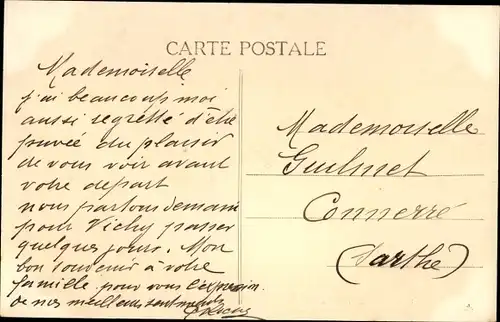 CARTE POSTALE
Mademoiselle
j'ai beaucoup moi
aussi regretté d'être
privée du plaisir
de vous voir avant
votre départ
nous partons demain
pour Vichy passer
quelques jours. Mon
bon souvenir à votre
famille pour vous l'expression
de nos meilleurs sentiments
Mademoiselle
Guilmet
Connerré
(Sarthe)